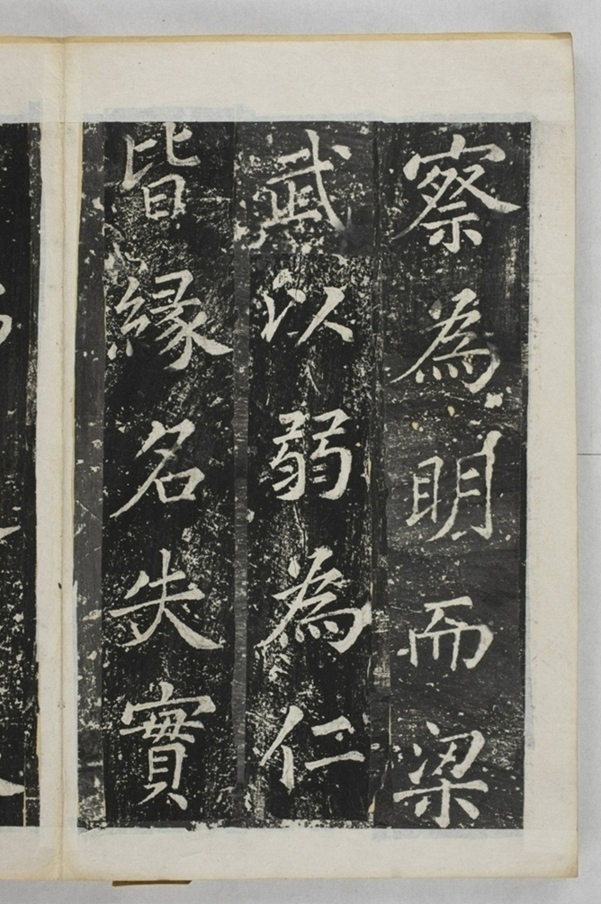 察為明而梁
武以弱為仁
皆縁名失實